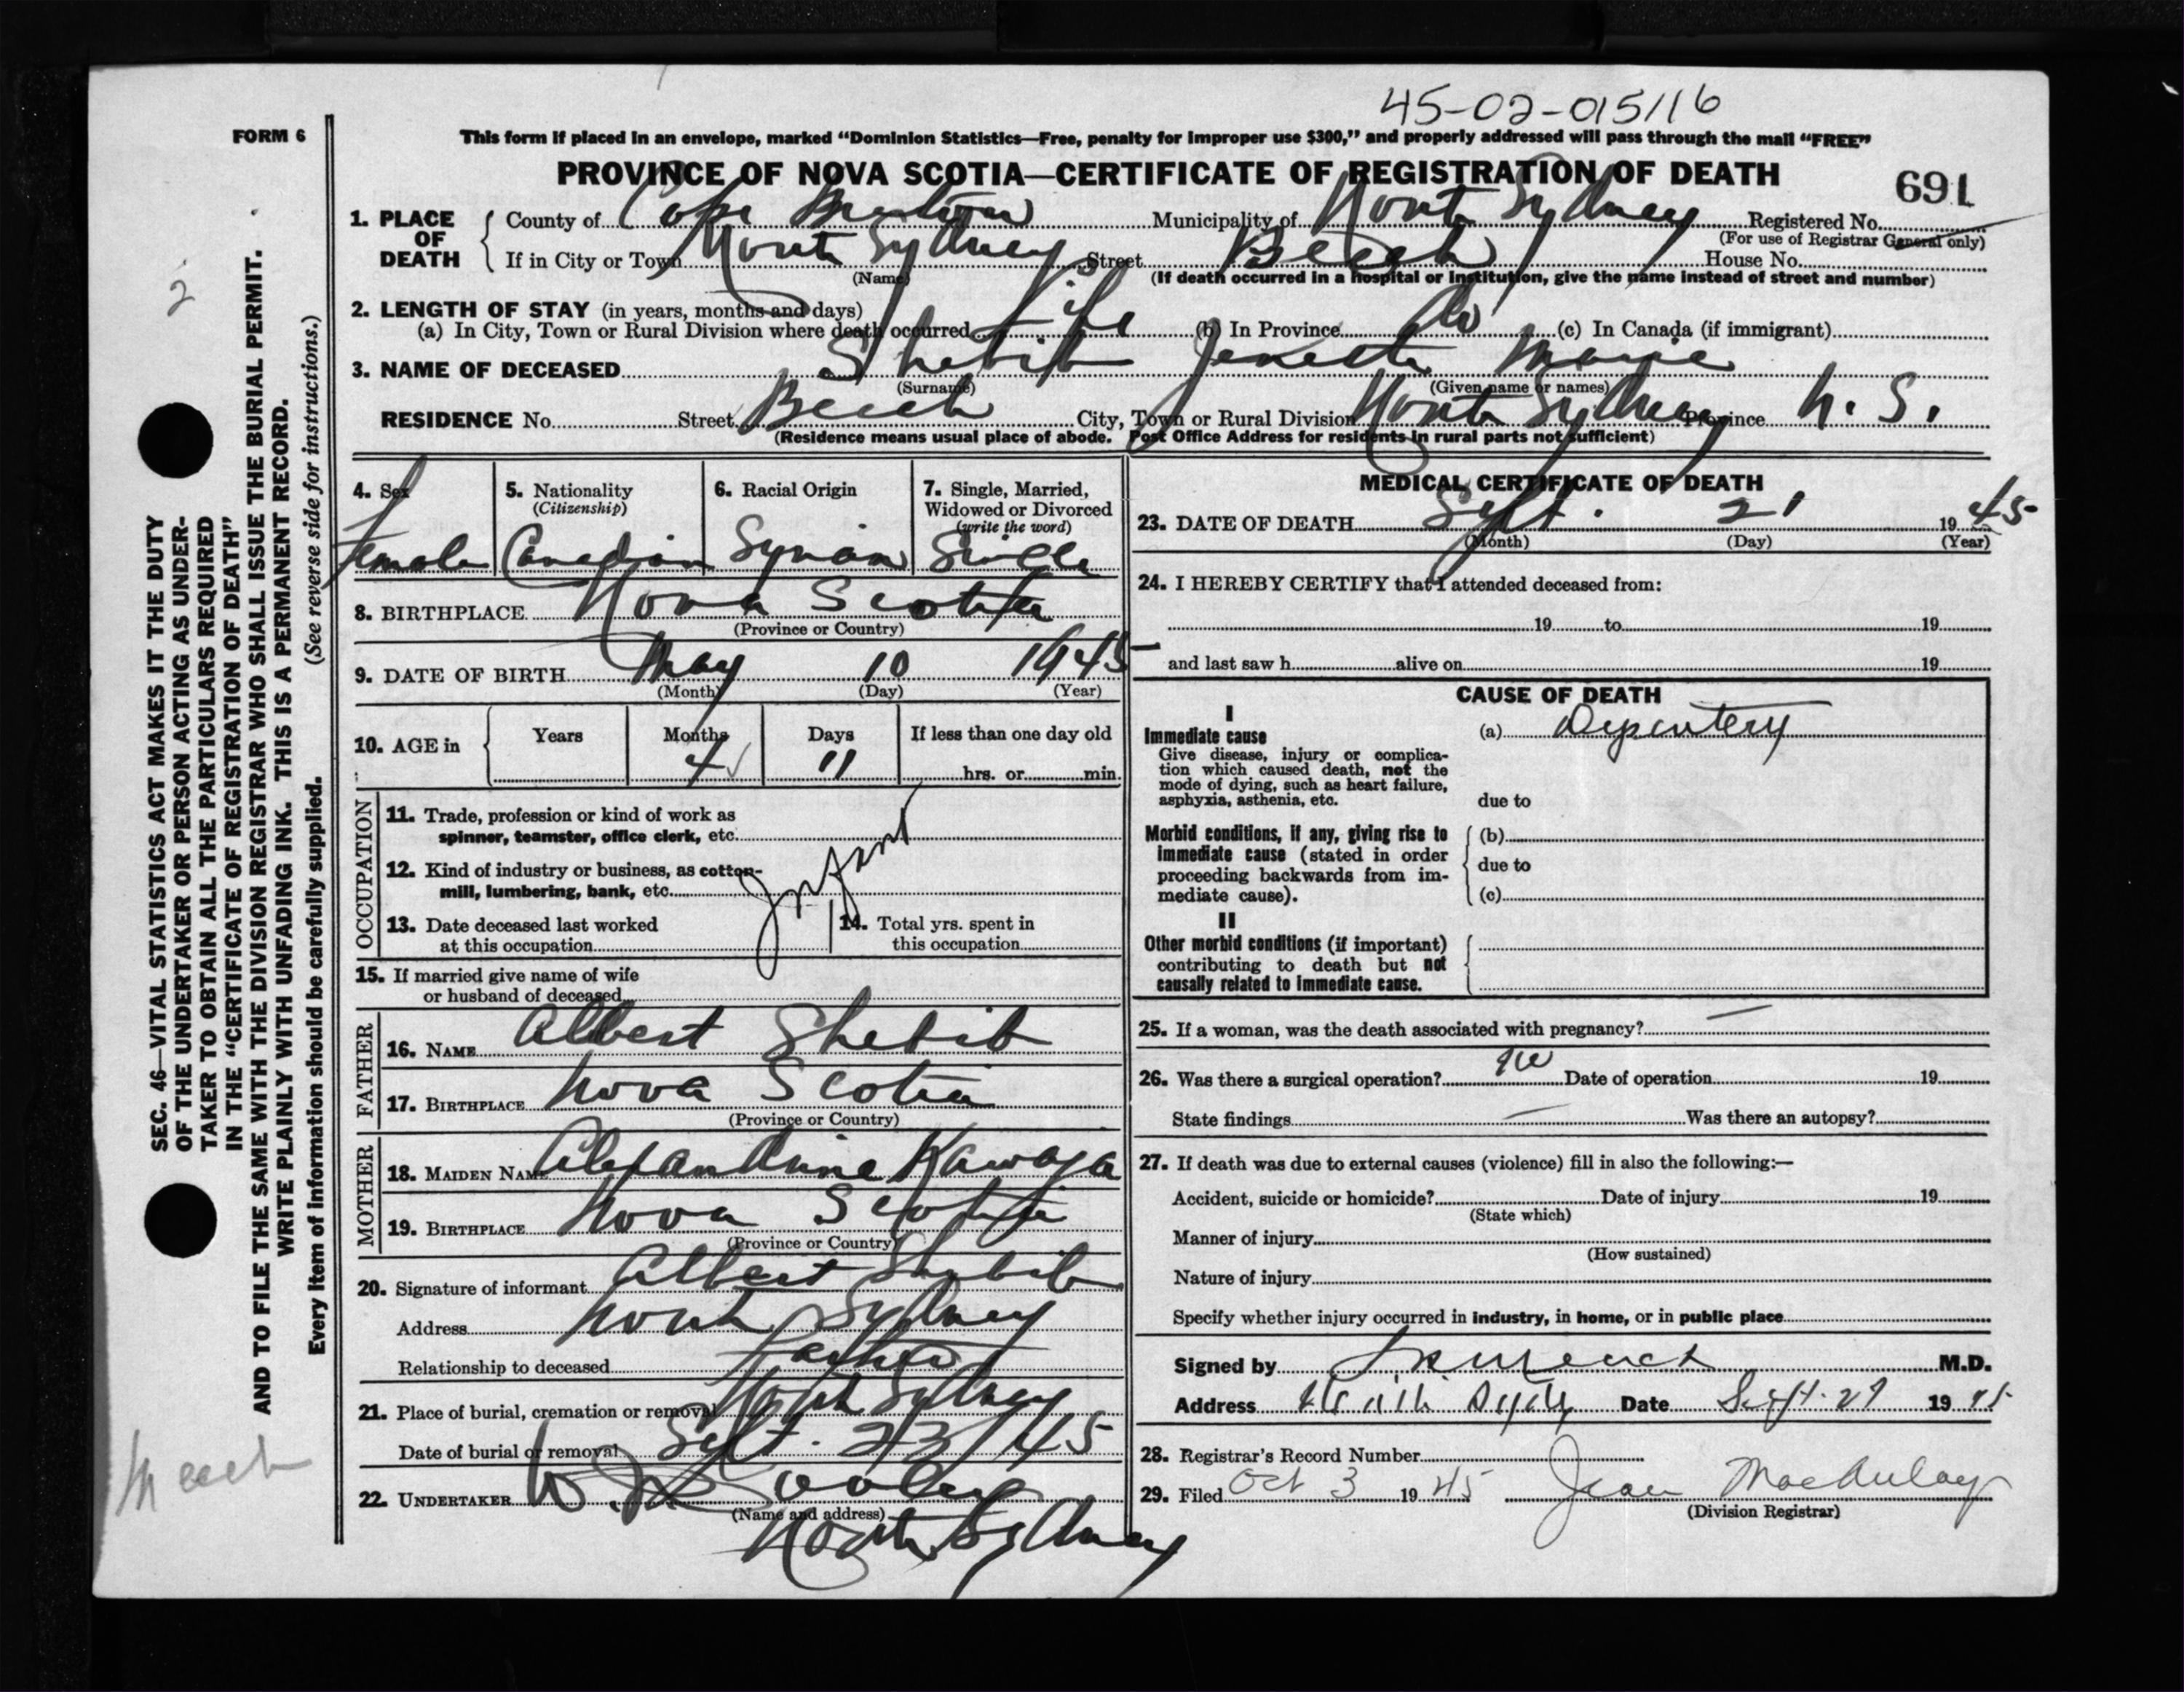 45-02-015116
FORM 6
This form if placed in an envelope, marked “Dominion Statistics—Free, penalty for improper use $300,” and properly addressed will pass through the mail “FREE”
PROVINCE OF NOVA SCOTIA—CERTIFICATE OF REGISTRATION OF DEATH
691
1. PLACE OF DEATH
County of Cape Breton Municipality of North Sydney Registered No.
(For use of Registrar General only)
If in City or Town North Sydney Street Beech House No.
(Name) (If death occurred in a hospital or institution, give the name instead of street and number)
2. LENGTH OF STAY (in years, months and days)
(a) In City, Town or Rural Division where death occurred Life (b) In Province do (c) In Canada (if immigrant)
3. NAME OF DECEASED Shebib Jenette Marie
(Surname) (Given name or names)
RESIDENCE No. Street Beech City, Town or Rural Division North Sydney Province N. S.
(Residence means usual place of abode. Post Office Address for residents in rural parts not sufficient)
4. Sex 5. Nationality 6. Racial Origin 7. Single, Married,
(Citizenship) Widowed or Divorced
(write the word)
Female Canadian Syrian Single
8. BIRTHPLACE Nova Scotia
(Province or Country)
9. DATE OF BIRTH May 10 1945
(Month) (Day) (Year)
10. AGE in Years Months Days If less than one day old
4 11 hrs. or min.
OCCUPATION
11. Trade, profession or kind of work as
spinner, teamster, office clerk, etc.
12. Kind of industry or business, as cotton-
mill, lumbering, bank, etc.
Infant
13. Date deceased last worked 14. Total yrs. spent in
at this occupation this occupation
15. If married give name of wife
or husband of deceased
FATHER
16. NAME Albert Shebib
17. BIRTHPLACE Nova Scotia
(Province or Country)
MOTHER
18. MAIDEN NAME Alexandrine Kawaja
19. BIRTHPLACE Nova Scotia
(Province or Country)
20. Signature of informant Albert Shebib
Address North Sydney
Relationship to deceased Father
21. Place of burial, cremation or removal North Sydney
Date of burial or removal Sept. 23/45
22. UNDERTAKER W. J. Dooley
(Name and address)
North Sydney
MEDICAL CERTIFICATE OF DEATH
23. DATE OF DEATH Sept. 21 1945
(Month) (Day) (Year)
24. I HEREBY CERTIFY that I attended deceased from:
19 to 19
and last saw h alive on 19
CAUSE OF DEATH
I
Immediate cause (a) Dysentery
Give disease, injury or complica-
tion which caused death, not the
mode of dying, such as heart failure,
asphyxia, asthenia, etc. due to
Morbid conditions, if any, giving rise to (b)
immediate cause (stated in order
proceeding backwards from im- due to
mediate cause). (c)
II
Other morbid conditions (if important)
contributing to death but not
causally related to immediate cause.
25. If a woman, was the death associated with pregnancy? —
26. Was there a surgical operation? no Date of operation 19
State findings — Was there an autopsy?
27. If death was due to external causes (violence) fill in also the following:—
Accident, suicide or homicide? Date of injury 19
(State which)
Manner of injury
(How sustained)
Nature of injury
Specify whether injury occurred in industry, in home, or in public place
Signed by M.D.
Address North Sydney Date Sept. 29 1945
28. Registrar's Record Number
29. Filed Oct 3 1945 Jean MacAulay
(Division Registrar)
SEC. 46—VITAL STATISTICS ACT MAKES IT THE DUTY
OF THE UNDERTAKER OR PERSON ACTING AS UNDER-
TAKER TO OBTAIN ALL THE PARTICULARS REQUIRED
IN THE “CERTIFICATE OF REGISTRATION OF DEATH”
AND TO FILE THE SAME WITH THE DIVISION REGISTRAR WHO SHALL ISSUE THE BURIAL PERMIT.
WRITE PLAINLY WITH UNFADING INK. THIS IS A PERMANENT RECORD.
Every item of information should be carefully supplied. (See reverse side for instructions.)
2